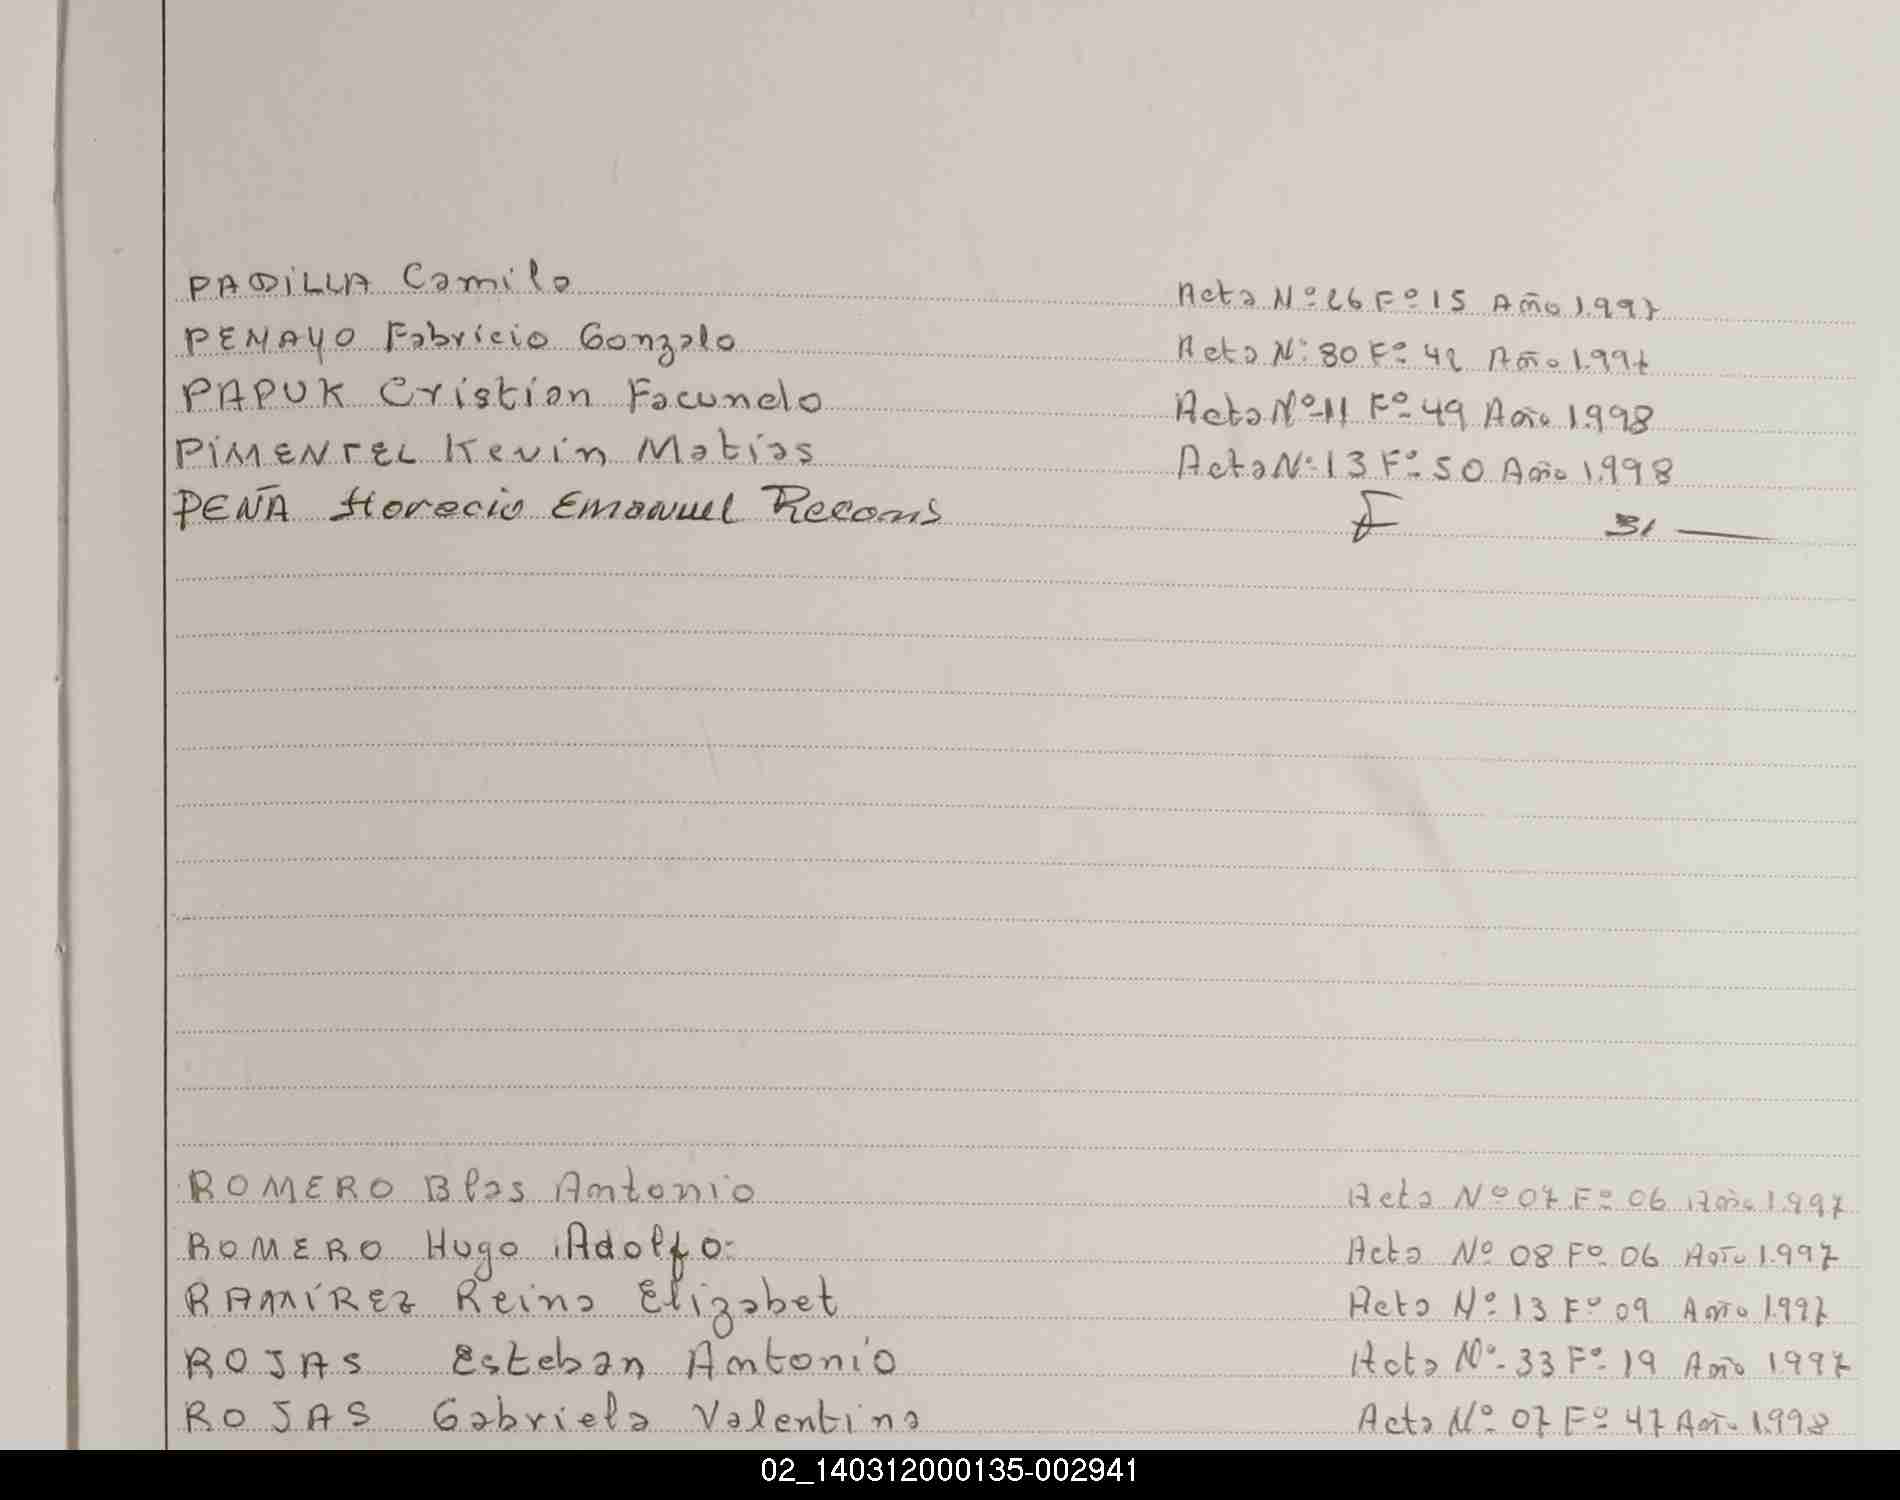 PADILLA Camilo Acta Nº 26 Fº 15 Año 1.997
PENAYO Fabricio Gonzalo Acta Nº 80 Fº 42 Año 1.997
PAPUK Cristian Facundo Acta Nº 11 Fº 49 Año 1.998
PIMENTEL Kevin Matias Acta Nº 13 Fº 50 Año 1.998
PEÑA Horacio Emanuel F 31
ROMERO Blas Antonio Acta Nº 07 Fº 06 Año 1.997
ROMERO Hugo Adolfo Acta Nº 08 Fº 06 Año 1.997
RAMÍREZ Reina Elizabet Acta Nº 13 Fº 09 Año 1.997
ROJAS Esteban Antonio Acta Nº 33 Fº 19 Año 1.997
ROJAS Gabriela Valentina Acta Nº 07 Fº 47 Año 1.998
02_140312000135-002941